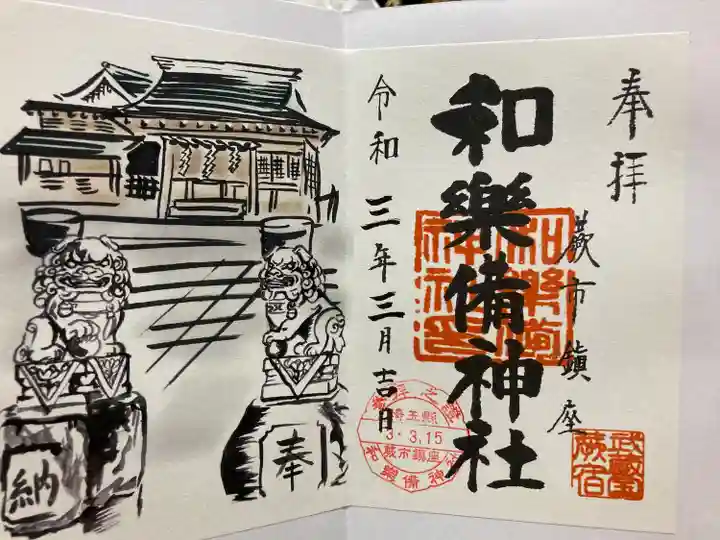 奉拝
蕨市鎮座
和樂備神社
令和三年三月吉日
和樂備
神社
参拝之證
埼玉縣
3.3.15
蕨市鎮座
和樂備神社
武蔵国
蕨宿
奉
納